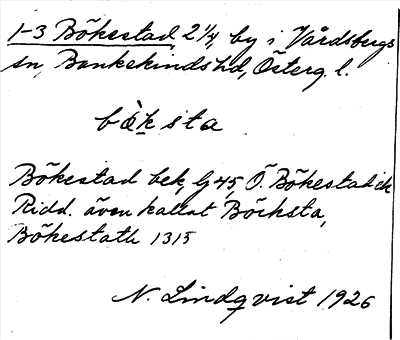 1-3 Bökestad, 2 1/4, by i Vårdsbergs
sn, Bankekinds hd, Österg. l.
bö̀k sta
Bökestad bek, G45, Ö. Bökestad ek
Ridd. även kallat Böcksta,
Bökestath 1315
N. Lindqvist 1926